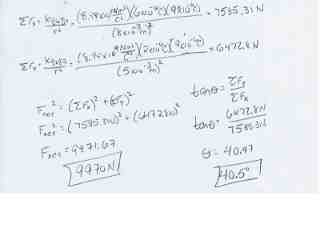 ΣFx = kq1q2/r² = (8.99x10⁹ Nm²/C²)(6x10⁻⁶C)(9x10⁻⁶C)/(8x10⁻³m)² = 7585.31N
ΣFy = kq1q2/r² = (8.99x10⁹ Nm²/C²)(2x10⁻⁶C)(9x10⁻⁶C)/(5x10⁻³m)² = 6472.8N
Fnet² = (ΣFx)² + (ΣFy)²
Fnet² = (7585.31N)² + (6472.8N)²
Fnet = 9971.67
9970N
tanθ = ΣFy/ΣFx
tanθ = 6472.8N/7585.31N
θ = 40.47
40.5°